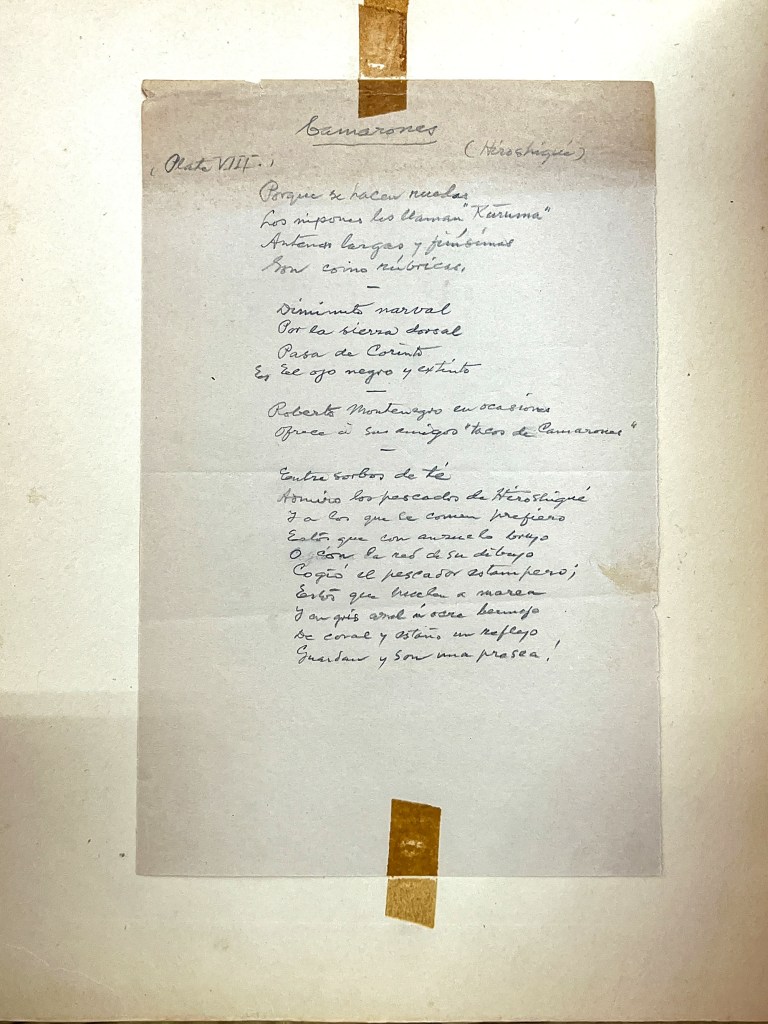 Camarones
(Hiroshigué)
(Plate VIII.)
Porque se hacen ruedas
Los nipones los llaman "Kuruma"
Antenas largas y finísimas
Son como rúbricas.
—
Diminuto narval
Por la sierra dorsal
Pasa de Corinto
Es El ojo negro y extinto
—
Roberto Montenegro en ocasiones
Ofrece á sus amigos "tacos de Camarones"
—
Entre sorbos de té
Admiro los pescados de Hiroshigué
Y a los que se comen prefiero
Estos que con anzuelo brujo
O con la red de su dibujo
Cogió el pescador estampero;
Estos que huelen a marea
Y en gris azul ú ocre bermejo
De coral y estaño un reflejo
Guardan y son una presea!